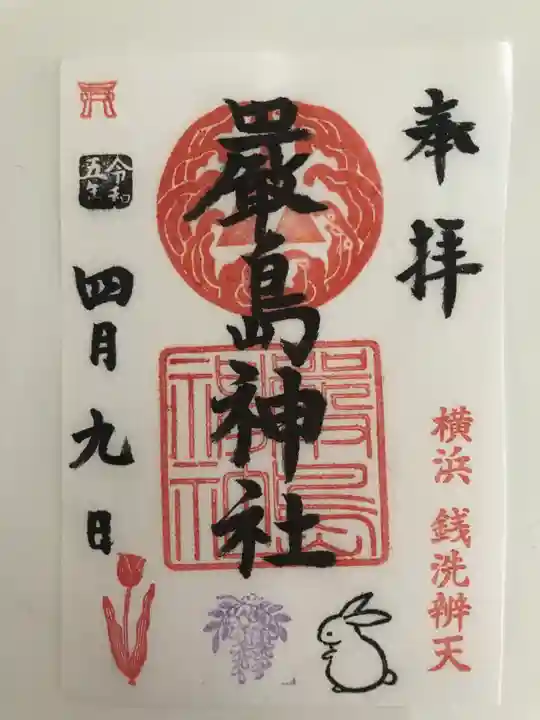 奉拝
横浜 銭洗辨天
嚴島神社
嚴島
神社
令和
五年
四月九日